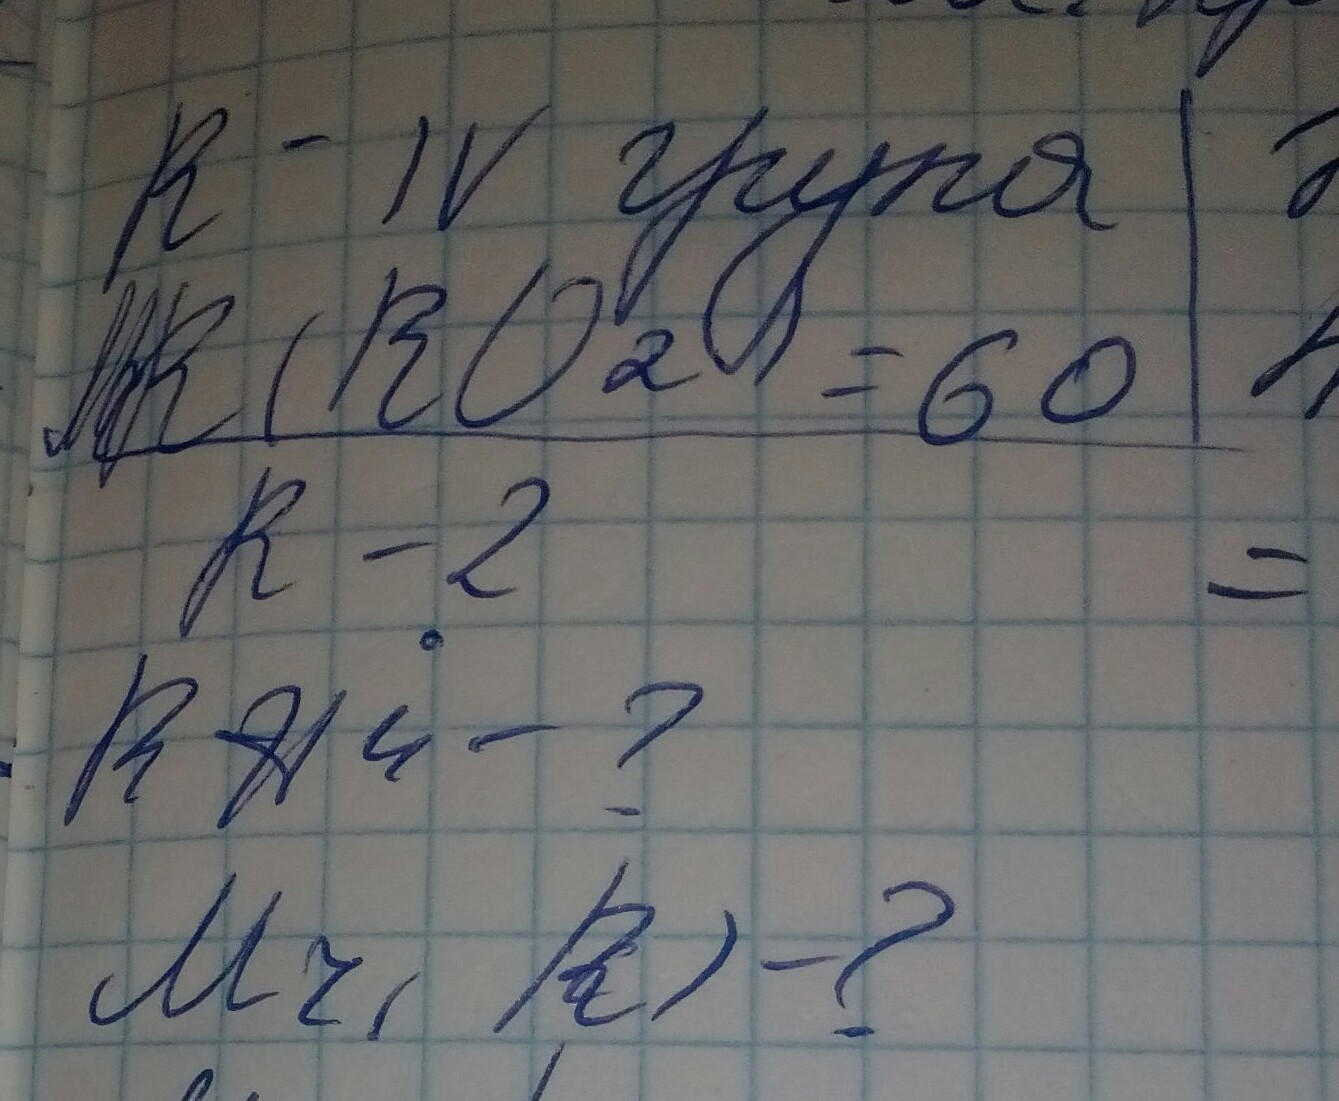 R - IV група
Mr(RO2) = 60
R - ?
RH4 - ?
Mr(R) - ?
=